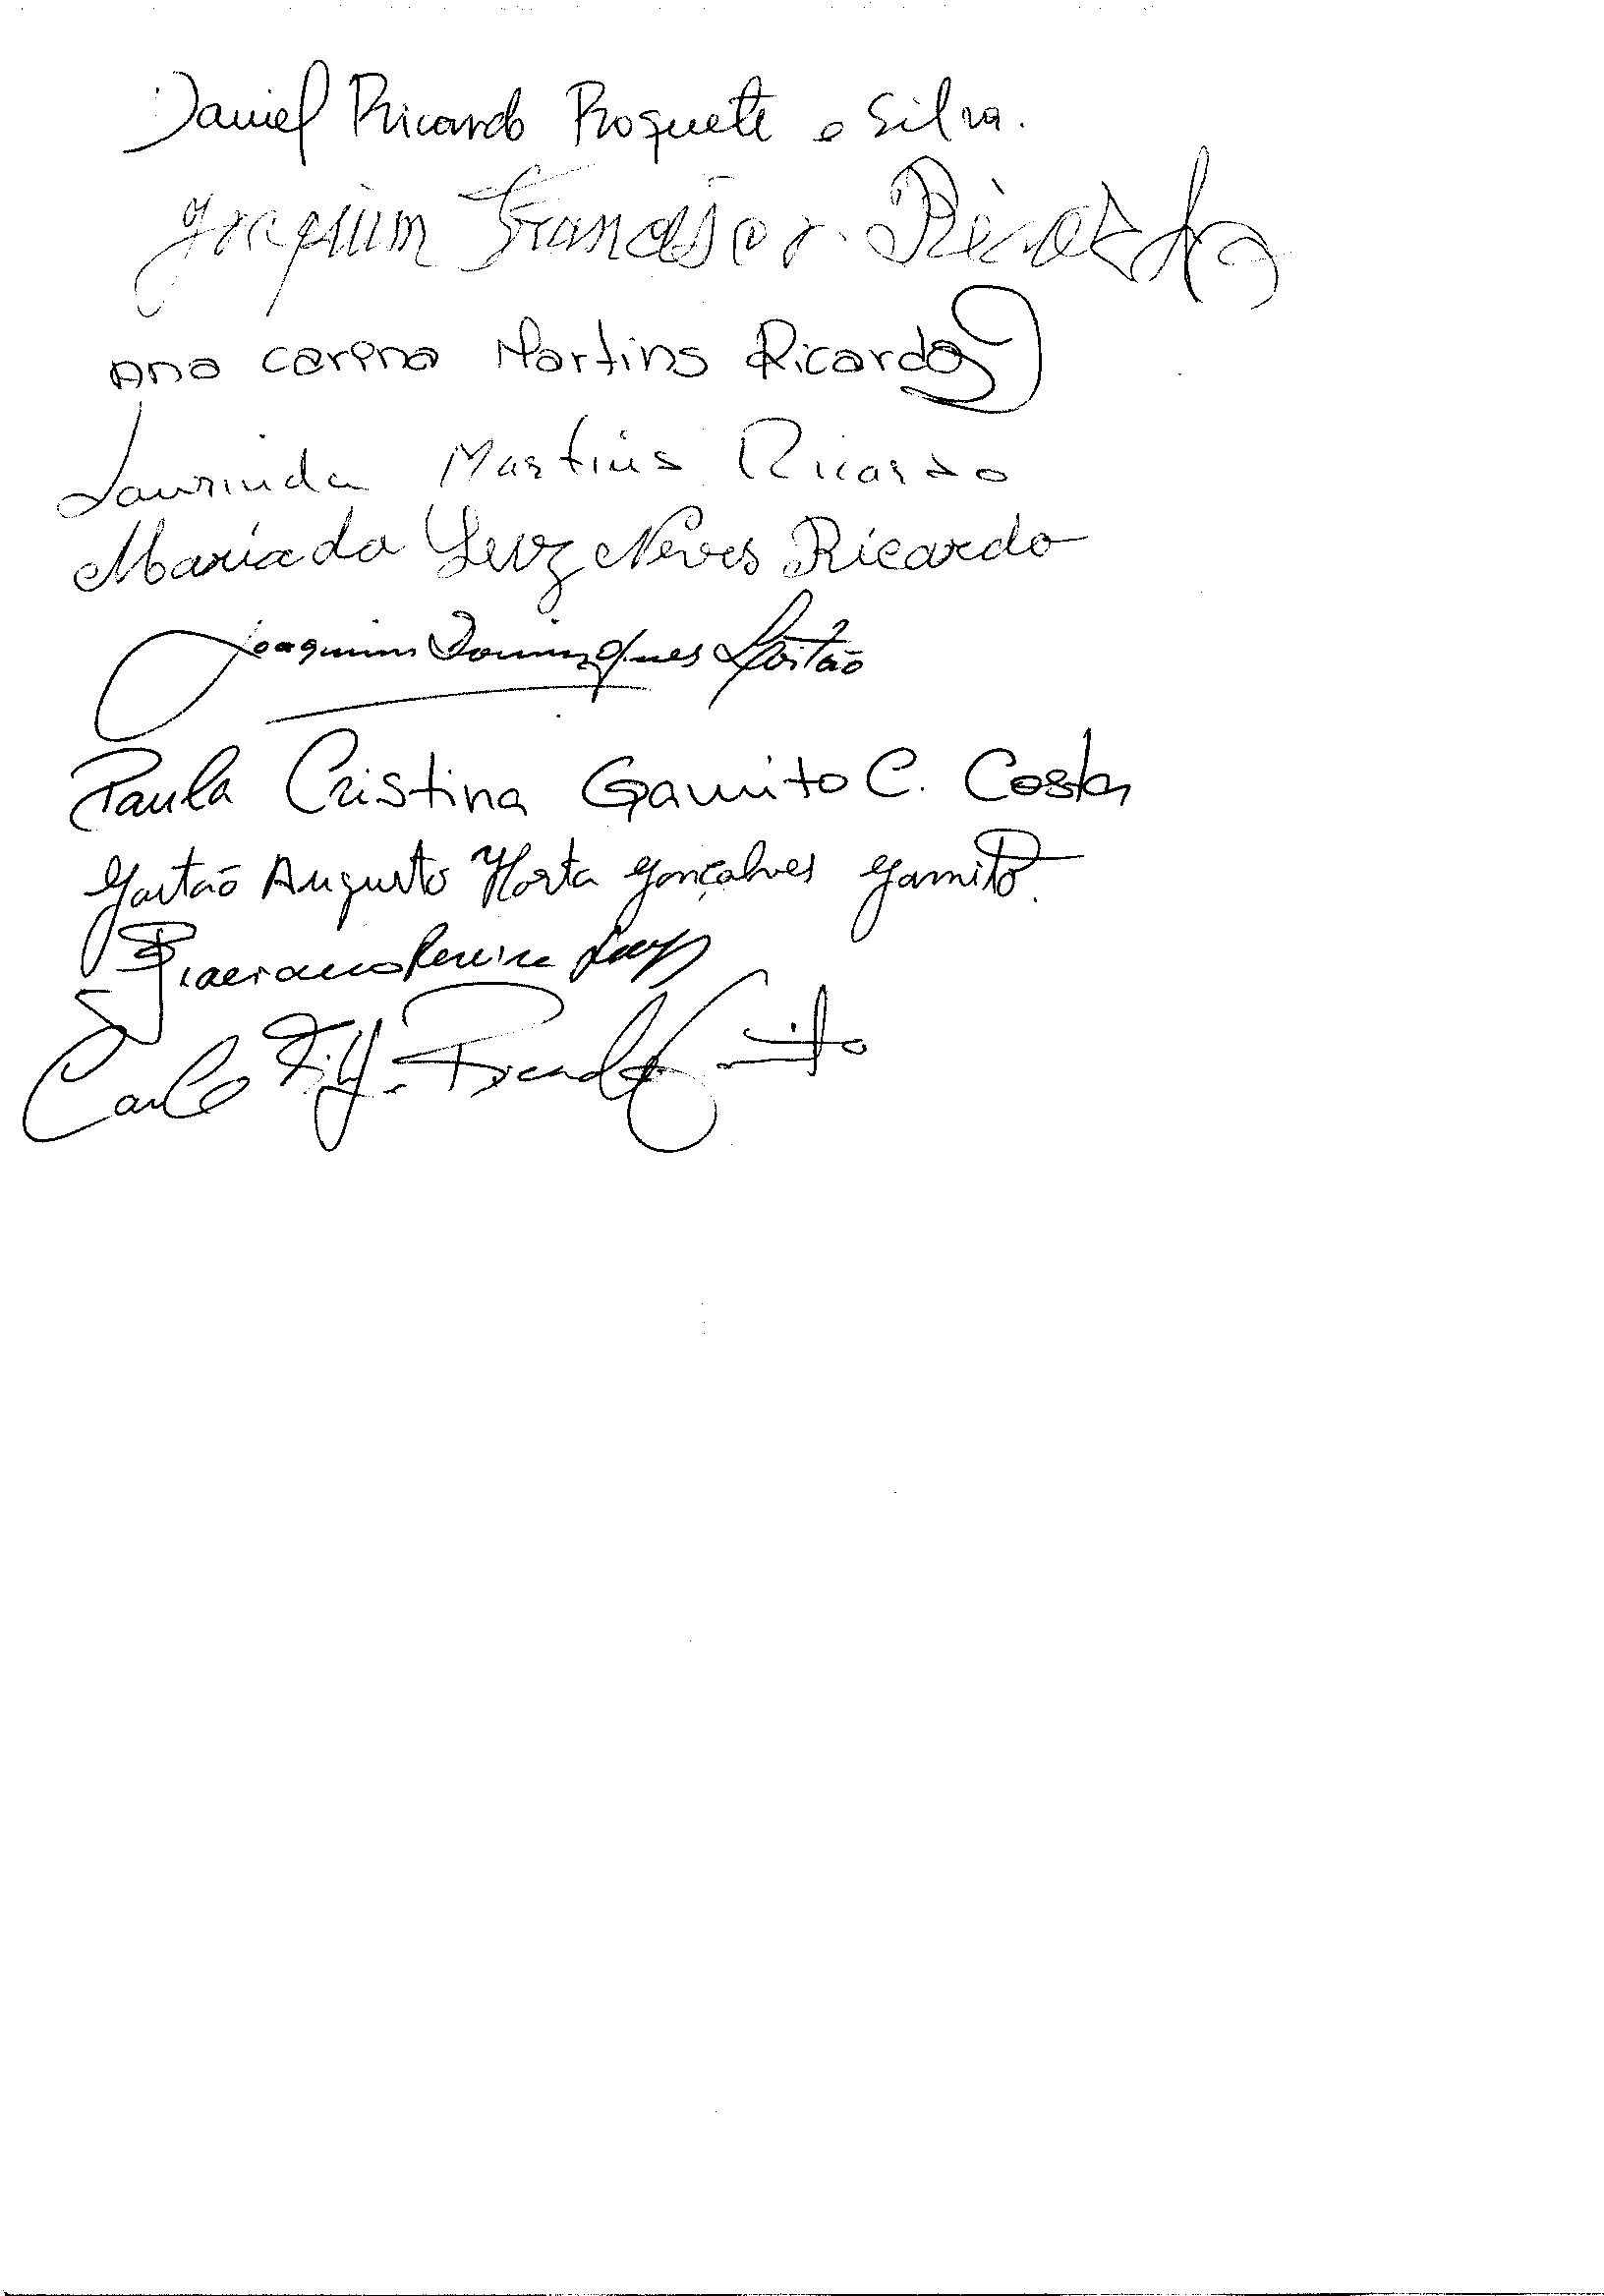 Daniel Ricardo Roquete e Silva.
Joaquim Francisco Ricardo
Ana Carina Martins Ricardo
Laurinda Martins Ricardo
Maria da Luz Neves Ricardo
Joaquim Domingues Leitão
Paula Cristina Gamito C. Costa
Gastão Augusto Horta Gonçalves Gamito.
Pereira
Carlos Filipe Ricardo Gamito